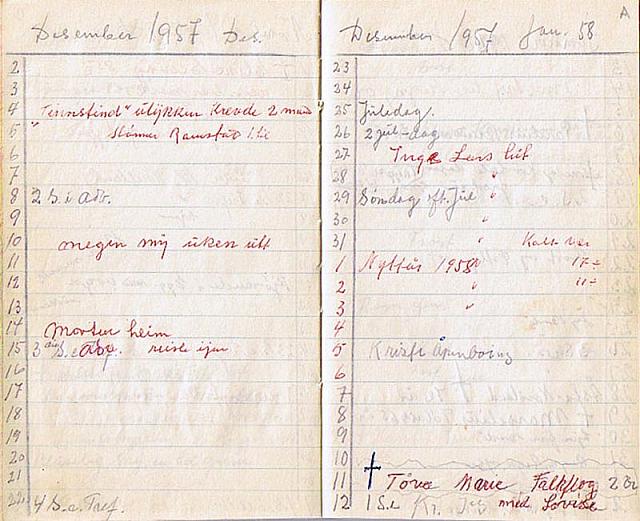 Desember 1957 Des.
2
3
4 "Tinnstind" ulykken krevde 2 mann
5 " Steiner Ramstad
6
7
8 2 S. i adv.
9
10 megen mij uken utt
11
12
13
14 Morten heim
15 3 S. e adv. reiste ijen
16
17
18
19
20
21
22 4 S. e.
Desember 1957 Jan. 58
A
23
24
25 Juledag.
26 2 jul-dag
27 Inga Lars hit
28 "
29 Søndag eft. Jul "
30 "
31 " Kalt vær
1 Nyttår 1958 " 17 -
2 " 11 -
3 "
4
5 Kristi åpenbaring
6
7
8
9
10
11 † Tora Marie Falkflog
12 1 S. e med Lovise